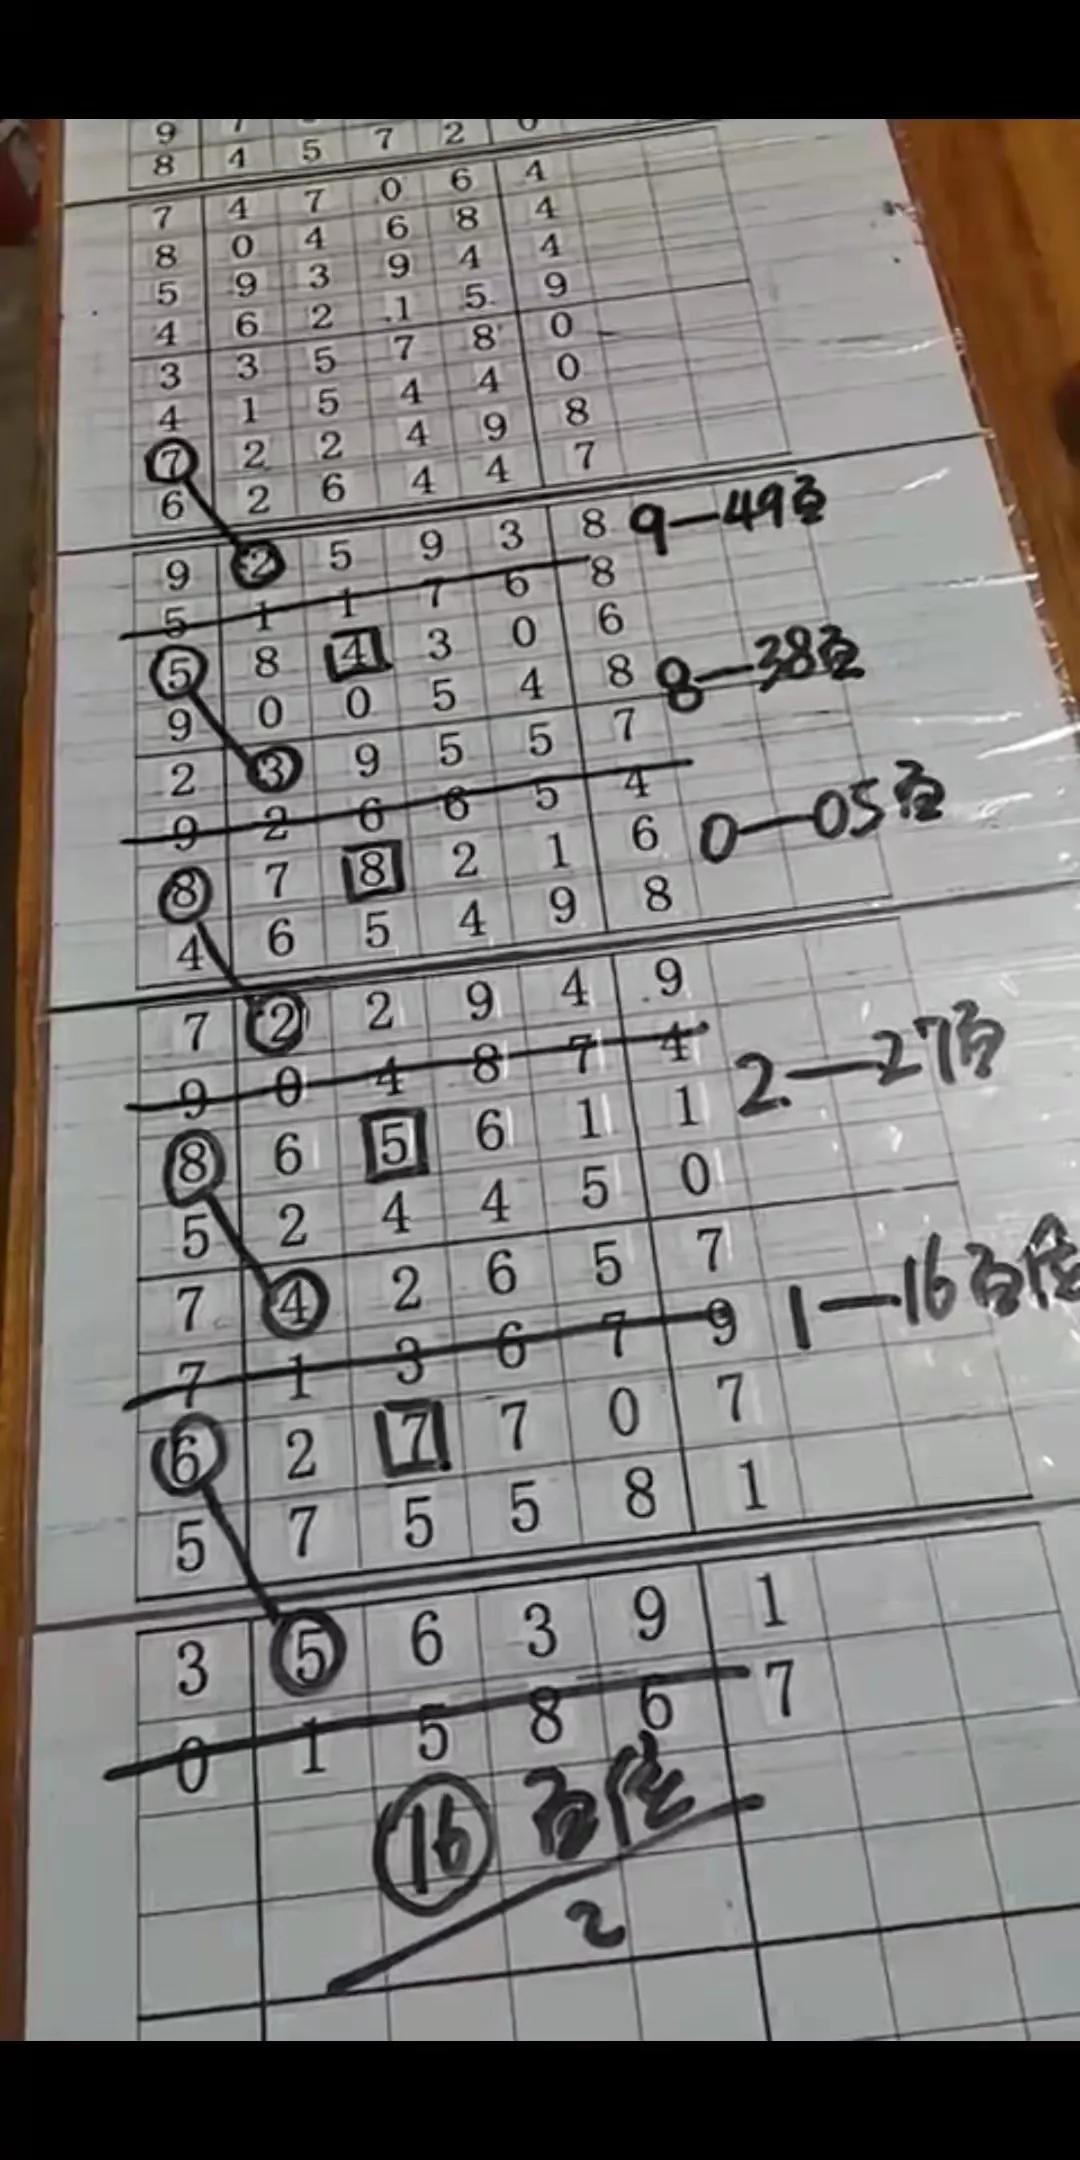 9 7
8 4 5 7 2 0
7 4 7 0 6 4
8 0 4 6 8 4
5 9 3 9 4 4
4 6 2 1 5 9
3 3 5 7 8 0
4 1 5 4 4 0
7 2 2 4 9 8
6 2 6 4 4 7
9 2 5 9 3 8 9—49百
5 1 1 7 6 8
5 8 4 3 0 6
9 0 0 5 4 8 8—38百
2 3 9 5 5 7
9 2 6 6 5 4
8 7 8 2 1 6 0—05百
4 6 5 4 9 8
7 2 2 9 4 9
9 0 4 8 7 4
8 6 5 6 1 1 2—27百
5 2 4 4 5 0
7 4 2 6 5 7
7 1 3 6 7 9 1—16百位
6 2 7 7 0 7
5 7 5 5 8 1
3 5 6 3 9 1
0 1 5 8 6 7
16 百位
2